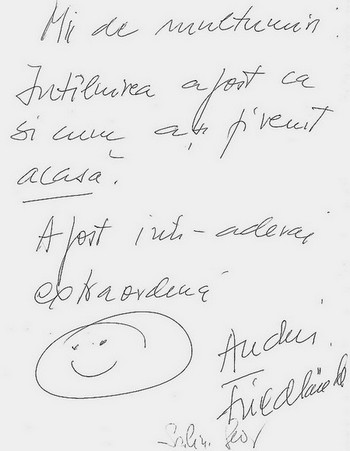 Mii de multumiri!
Intîlnirea a fost ca
si cum ați fi venit
acasă.
A fost intr-adevăr
extraordinară
Andrei